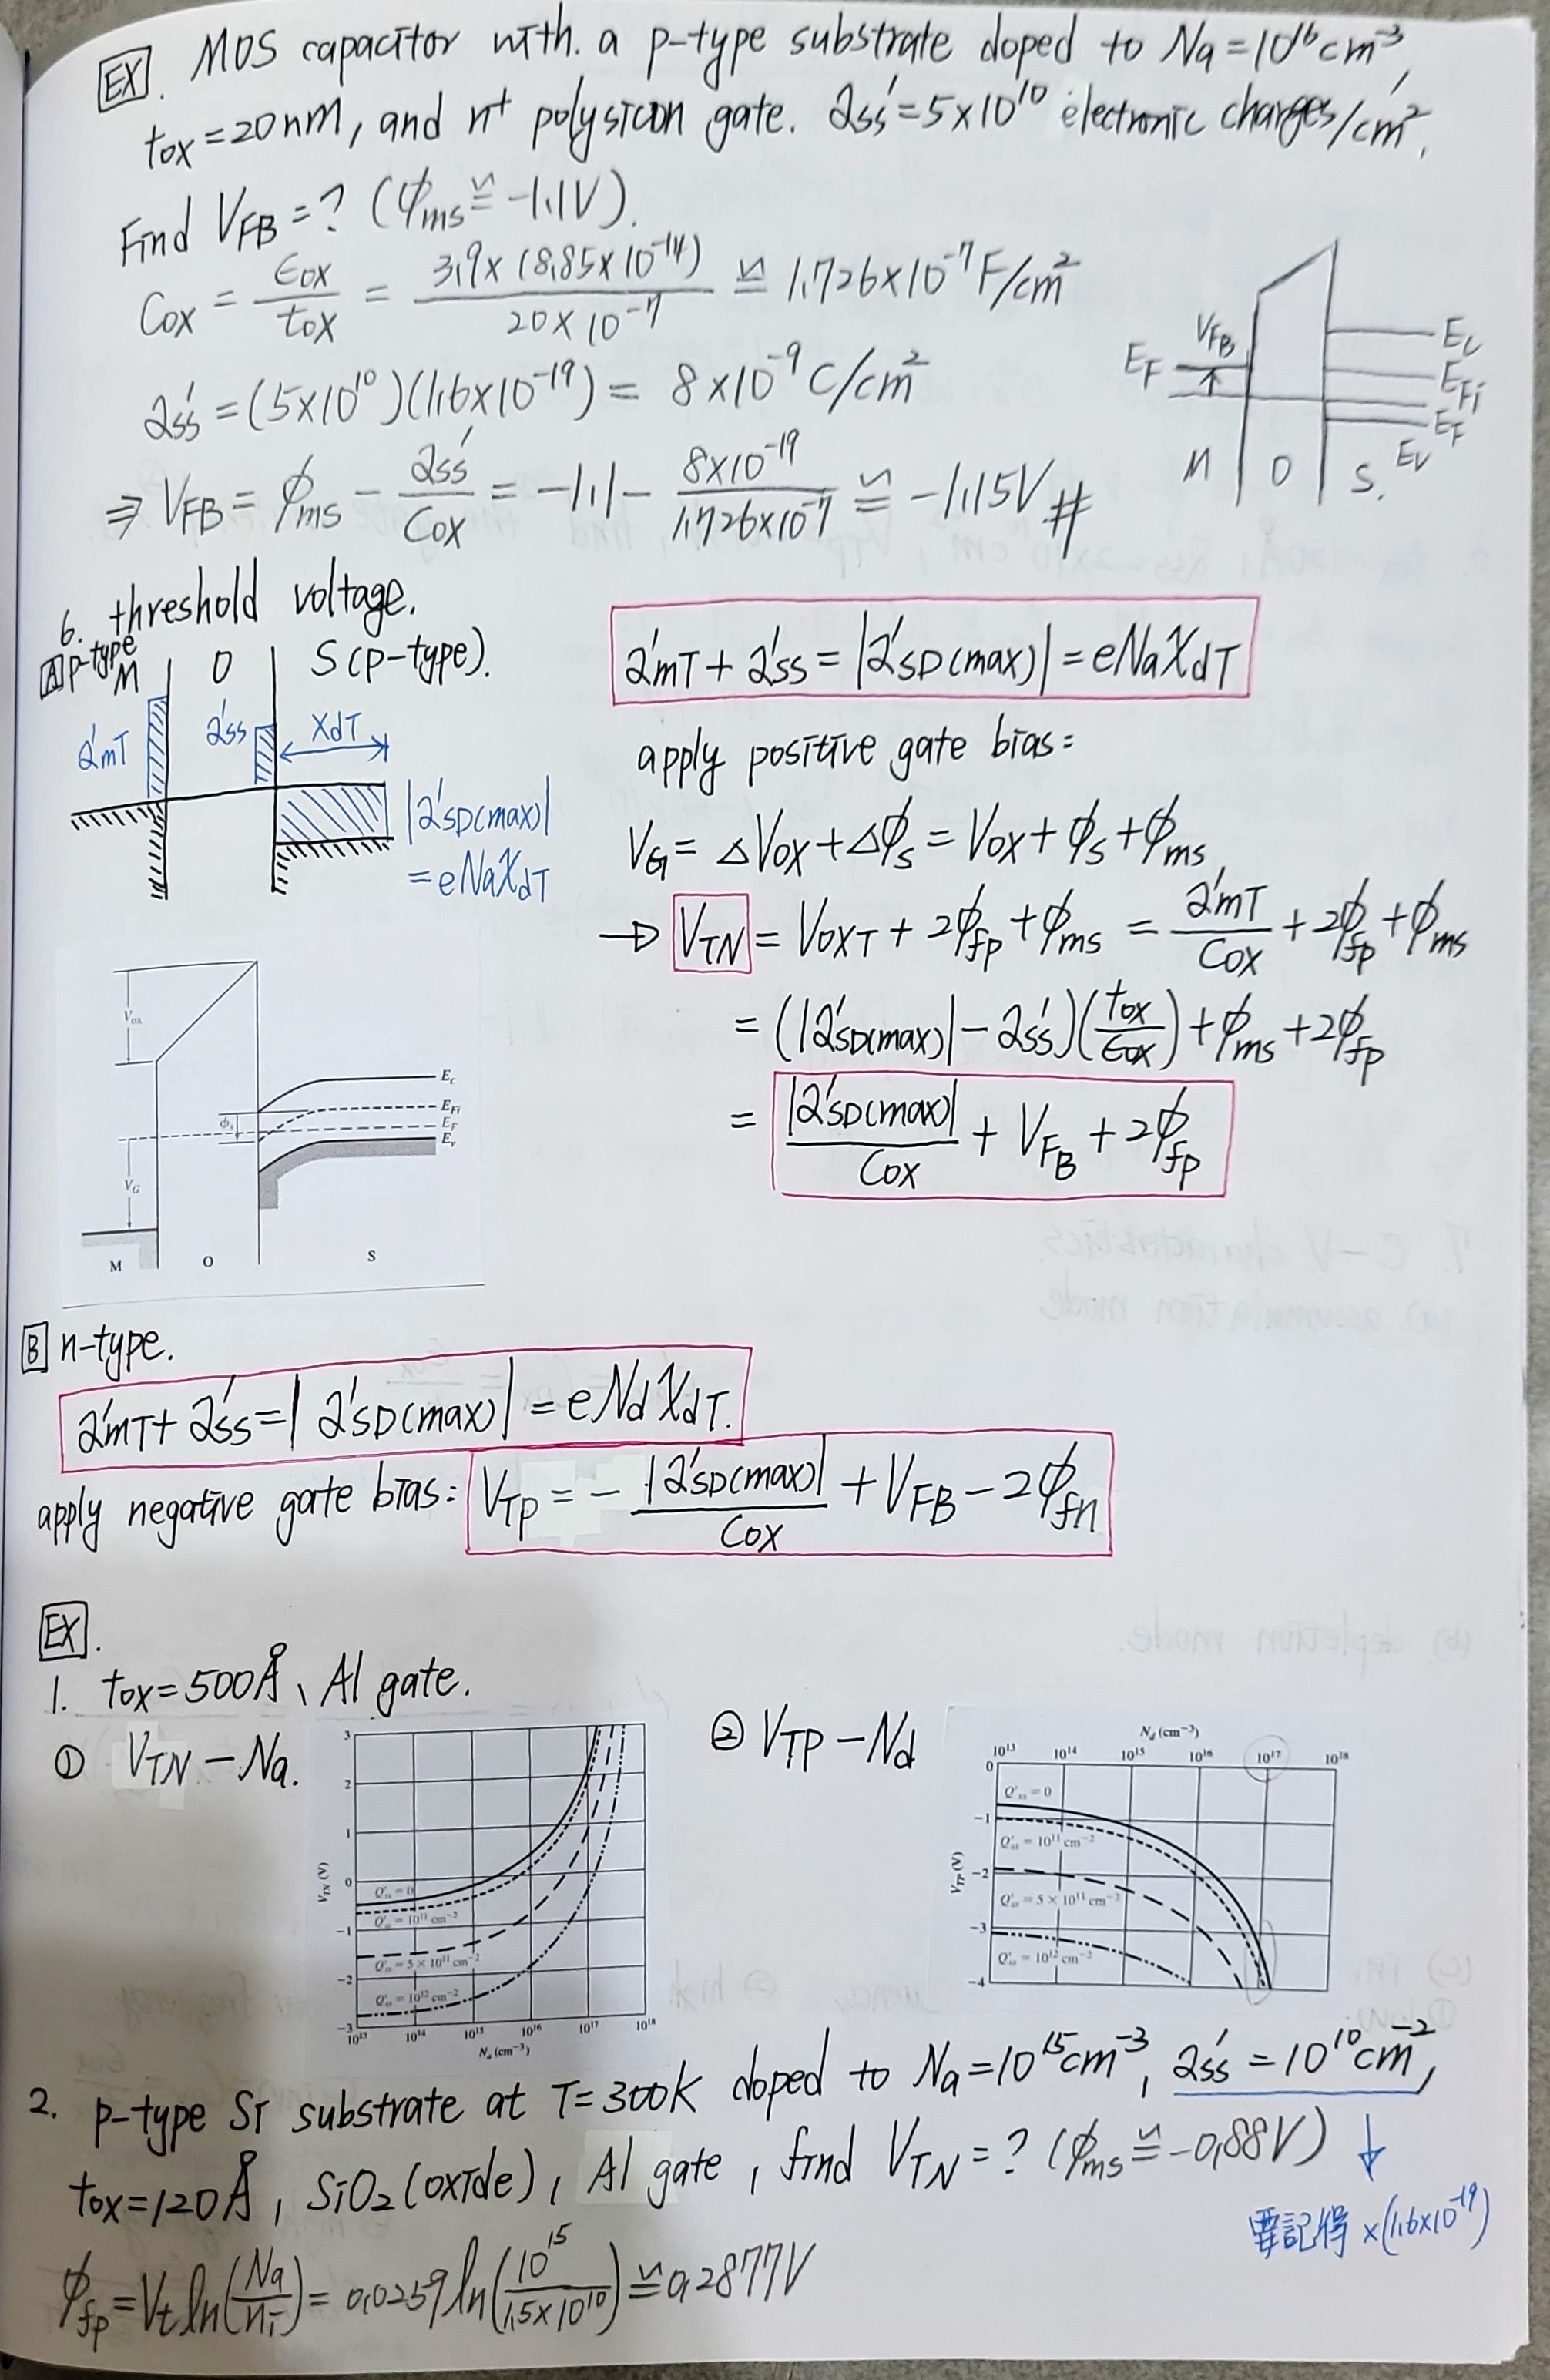 EX. MOS capacitor with. a p-type substrate doped to Na=10¹⁶cm⁻³,
tox=20nm, and n⁺ polysicon gate. Qss'=5×10¹⁰ electronic charges/cm²,
Find VFB=? (ϕms≌-1.1V).
Cox = ϵox/tox = 3.9×(8.85×10⁻¹⁴)/20×10⁻⁷ ≌ 1.726×10⁻⁷F/cm²
Qss'=(5×10¹⁰)(1.6×10⁻¹⁹)= 8×10⁻⁹C/cm²
⇒ VFB= ϕms - Qss'/Cox = -1.1 - 8×10⁻¹⁹/1.726×10⁻⁷ ≌ -1.15V #
VFB
EF
Ec
EFi
EF
Ev
M O S.
6. threshold voltage.
A p-type
M O S(p-type).
Q'mT Q'ss XdT
|Q'SD(max)|
=eNaXdT
Q'mT+Q'ss=|Q'SD(max)|=eNaXdT
apply positive gate bias:
VG= △Vox+△ϕs=Vox+ϕs+ϕms
→ VTN = VoxT + 2ϕfp+ϕms = Q'mT/Cox +2ϕfp+ϕms
= (|Q'SD(max)|-Qss')(tox/ϵox)+ϕms+2ϕfp
= |Q'SD(max)|/Cox + VFB + 2ϕfp
Vox
Ec
EFi
EF
Ev
ϕs
VG
M O S
B n-type.
Q'mT+Q'ss=|Q'SD(max)|=eNdXdT.
apply negative gate bias: VTP = - |Q'SD(max)|/Cox +VFB-2ϕfn
EX.
1. tox=500Å、Al gate.
① VTN-Na.
3
2
1
0
-1
-2
-3
VTN (V)
Q'ss = 0
Q'ss = 10¹¹ cm⁻²
Q'ss = 5 × 10¹¹ cm⁻²
Q'ss = 10¹² cm⁻²
10¹³ 10¹⁴ 10¹⁵ 10¹⁶ 10¹⁷ 10¹⁸
Na (cm⁻³)
② VTP-Nd
Nd (cm⁻³)
10¹³ 10¹⁴ 10¹⁵ 10¹⁶ 10¹⁷ 10¹⁸
0
-1
-2
-3
-4
VTP (V)
Q'ss = 0
Q'ss = 10¹¹ cm⁻²
Q'ss = 5 × 10¹¹ cm⁻²
Q'ss = 10¹² cm⁻²
2. p-type Si substrate at T=300K doped to Na=10¹⁵cm⁻³, Qss'=10¹⁰cm⁻²,
tox=120Å, SiO₂(oxide), Al gate, find VTN=? (ϕms≌-0.88V)
要記得×(1.6×10⁻¹⁹)
ϕfp=Vt ln(Na/ni)= 0.0259 ln(10¹⁵/1.5×10¹⁰)≌0.2877V